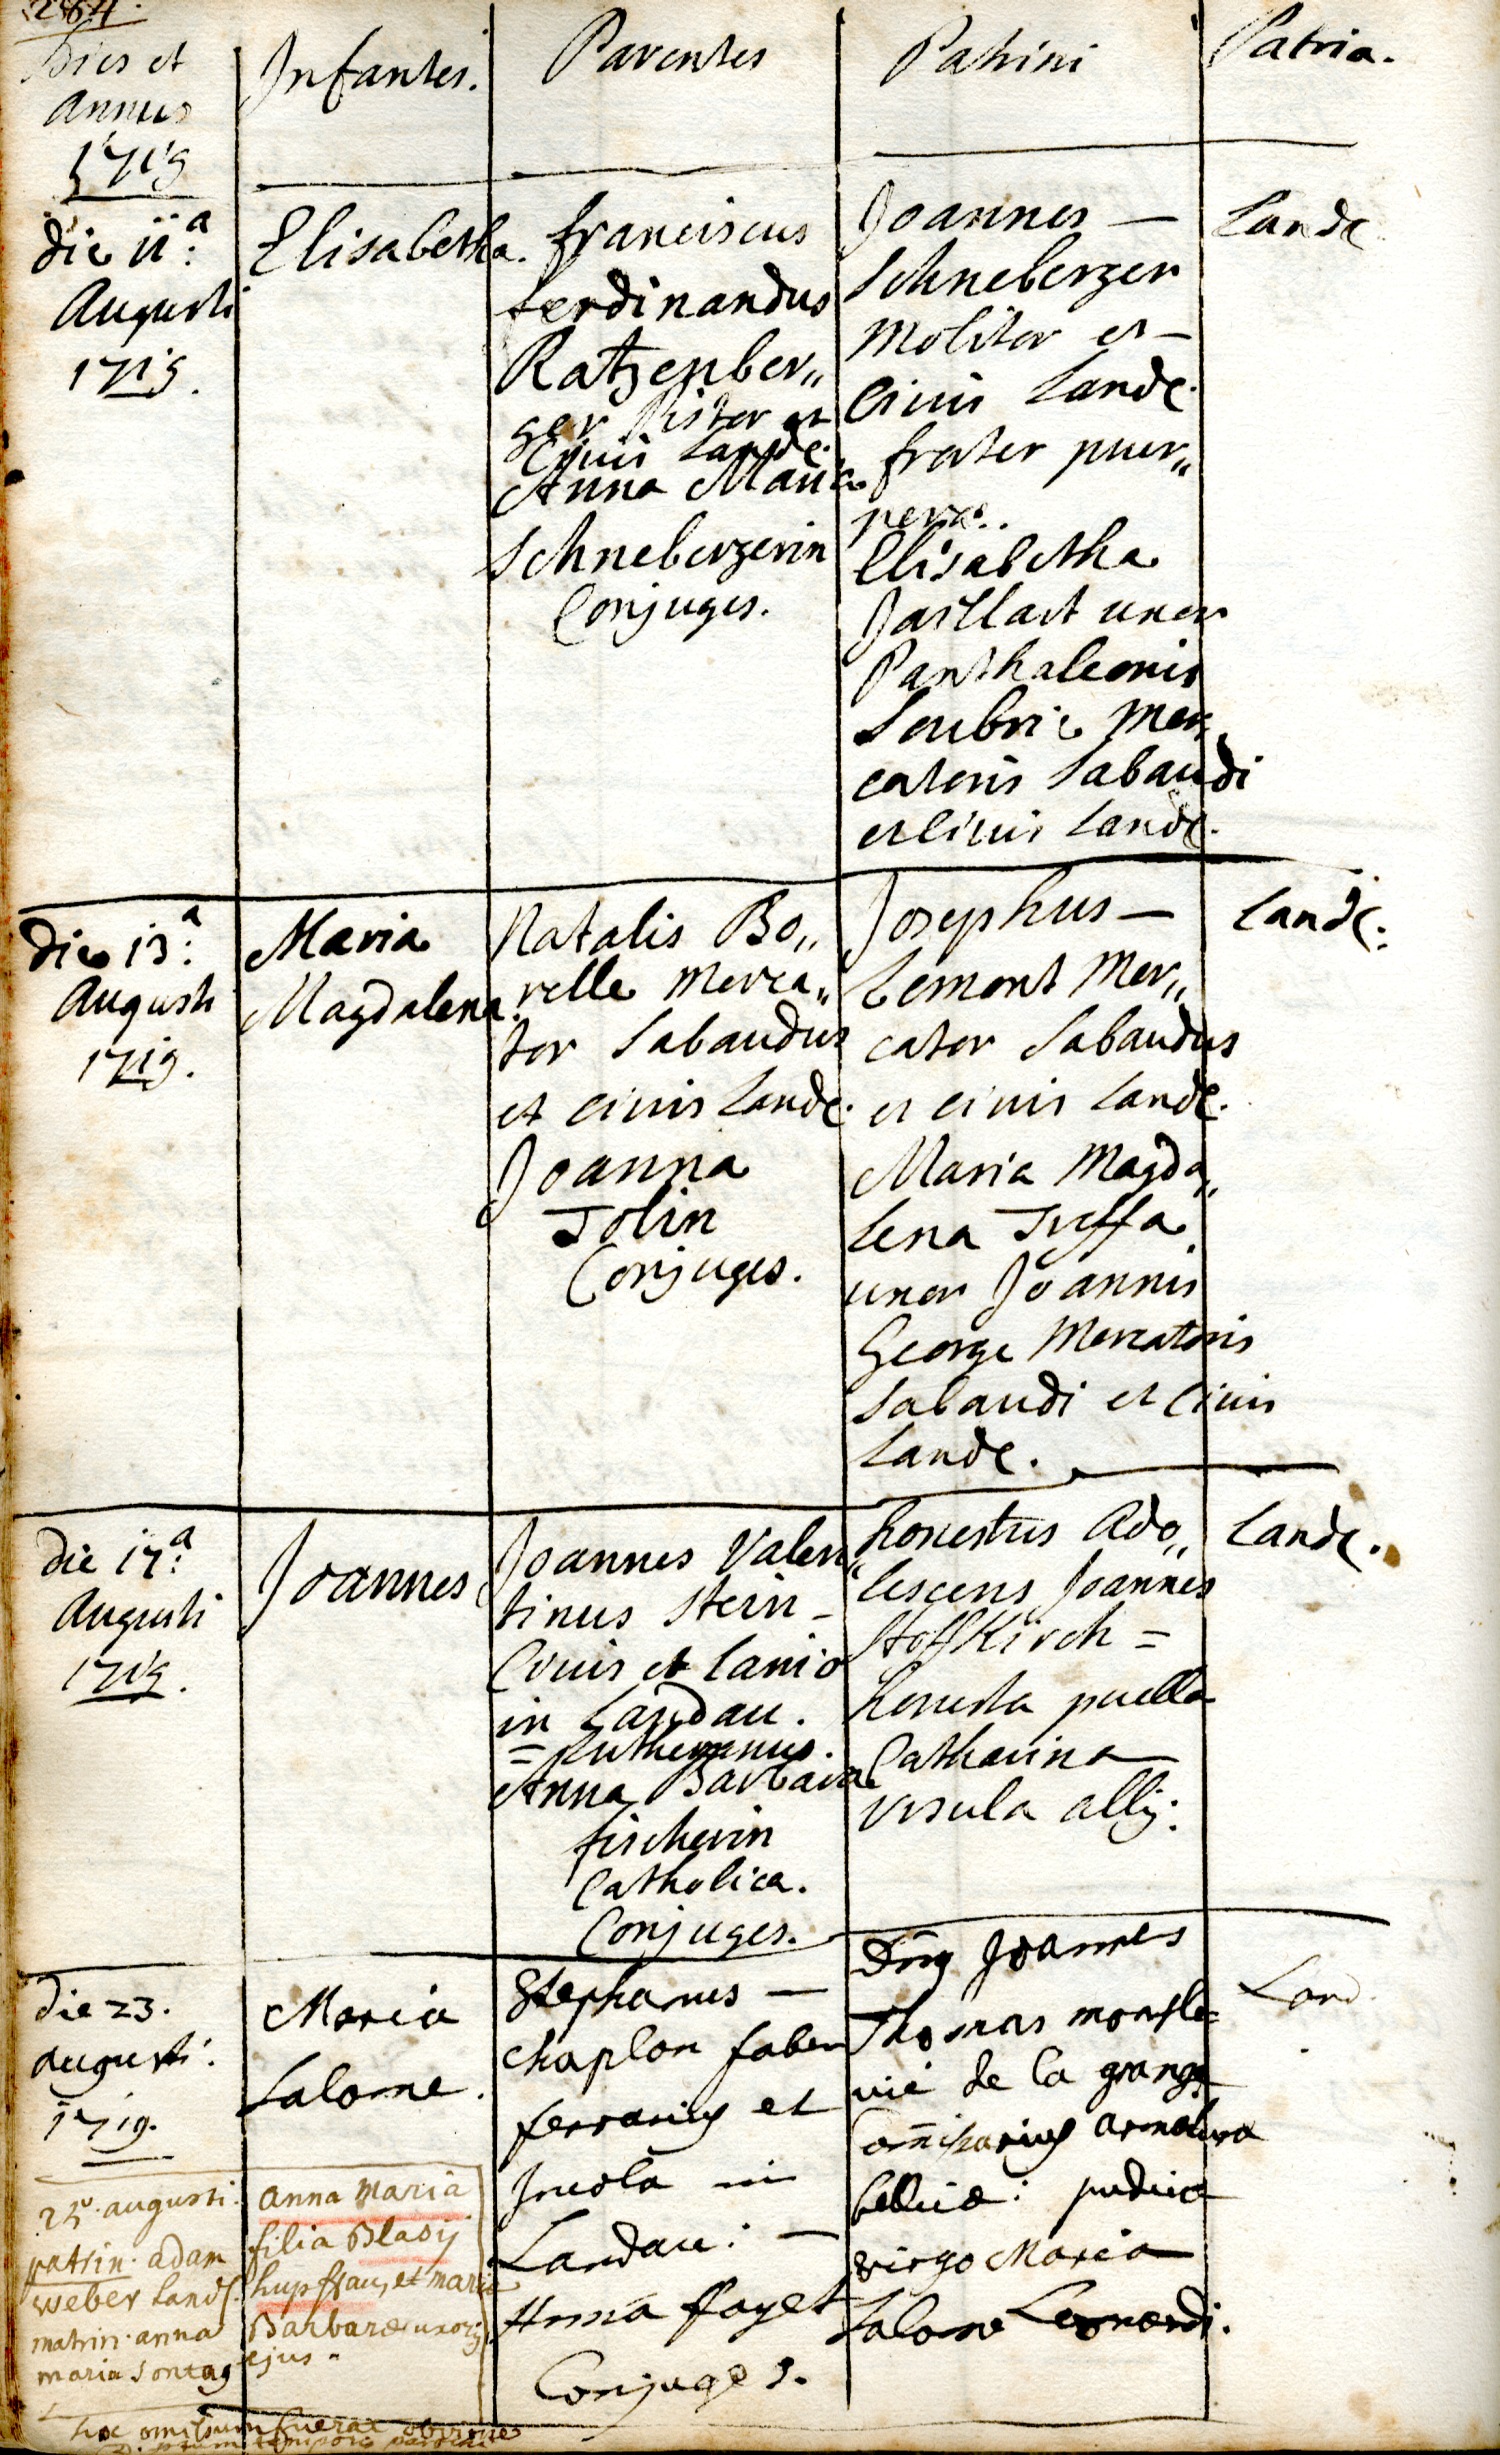 264.
Dies et
Annus
1719
Infantes.
Parentes
Patrini
Patria.
die 11.a
Augusti
1719.
Elisabetha.
franciscus
ferdinandus
Ratzenber„
ger Pistor et
Civis Landc.
Anna Maria
Schnebergerin
Conjuges.
Joannes —
Schneberger
Molitor et —
Civis Landc.
frater puer„
perae.
Elisabetha
Jaillact uxor
Panthaleonis
Soubrie Mer„
catoris Sabaudi
et civis Landc.
Landc.
die 13.a
Augusti
1719.
Maria
Magdalena.
Natalis Bo„
relle Merca„
tor Sabaudus
et civis Landc.
Joanna
Jolin
Conjuges.
Josephus —
Lemont Mer„
cator Sabaudus
et civis Landc.
Maria Magda„
lena Treffa
uxor Joannis
George Mercatoris
Sabaudi et Civis
Landc.
Landc.
die 17.a
Augusti
1719.
Joannes
Joannes Valen„
tinus Stein –
Civis et lanio
in Landau.
= Lutheranus.
Anna Barbara
fischerin
Catholica.
Conjuges.
honestus Ado„
lescens Joannes
Hoffkirch =
honesta puella
Catharina
Ursula allg.
Landc.
die 23.
augusti.
1719.
Maria
Salome.
Stephanus —
Chaplon faber
ferrarius et
Incola in
Landau: —
Anna fayet
Conjuges.
Dñs Joannes
Thomas monsle=
vié de la grange
Com̃isarius armatura
bellica: pudica
virgo Maria
Salome Leonardi.
Land.
25. augusti.
patrin. adam
weber Land.
matrin. anna
maria Sontag
anna Maria
filia Blasij
hupfrau, et maria
Barbarae uxoris
ejus.
hoc omissum fuerat